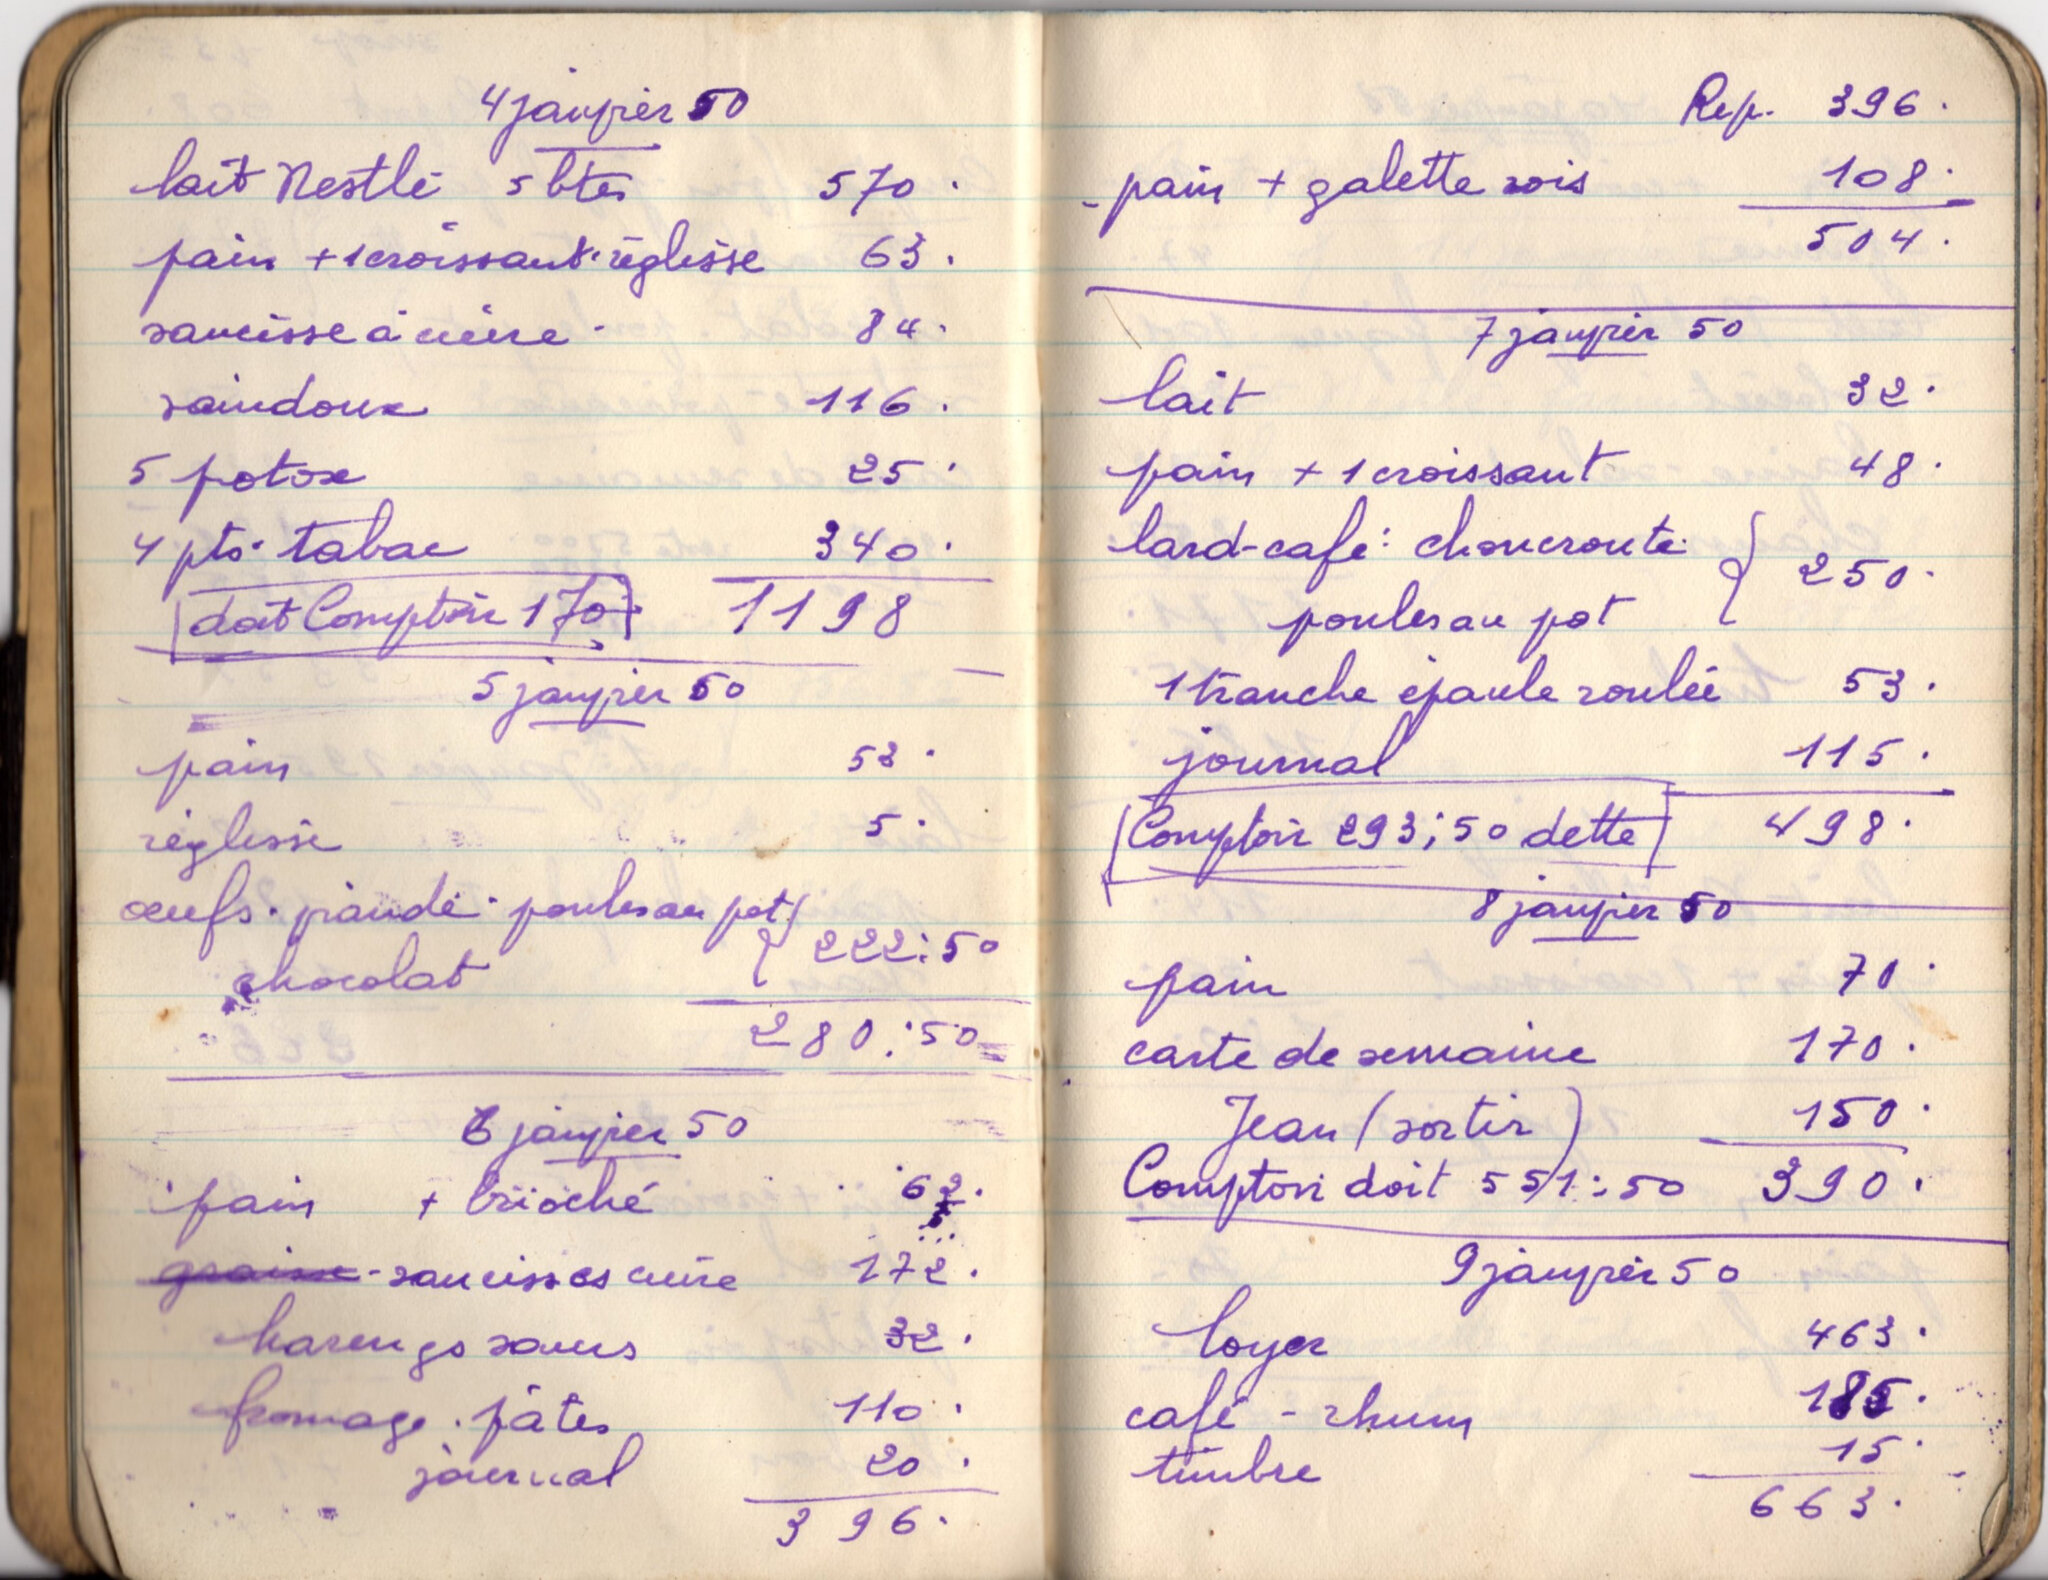 4 janvier 50
lait Nestlé 5 btes 570.
pain + 1 croissant. réglisse 63.
saucisse à cuire. 84.
saindoux 116.
5 potox 25.
4 pts. tabac 340.
doit Comptoir 170. 1198
5 janvier 50
pain 53.
réglisse 5.
œufs. viande. poules au pot
chocolat 222:50
280:50
6 janvier 50
pain + brioché 62.
graisse - saucisses cuire 172.
harengs saurs 32.
fromage. pâtes 110.
journal 20.
396.
Rep. 396.
- pain + galette rois 108.
504.
7 janvier 50
lait 32.
pain + 1 croissant 48.
lard-café: choucroute
poules au pot 250.
1 tranche épaule roulée 53.
journal 115.
Comptoir 293;50 dette 498.
8 janvier 50
pain 70.
carte de semaine 170.
Jean (sortir) 150.
Comptoir doit 551:50 390.
9 janvier 50
loyer 463.
café - rhum 185.
timbre 15.
663.